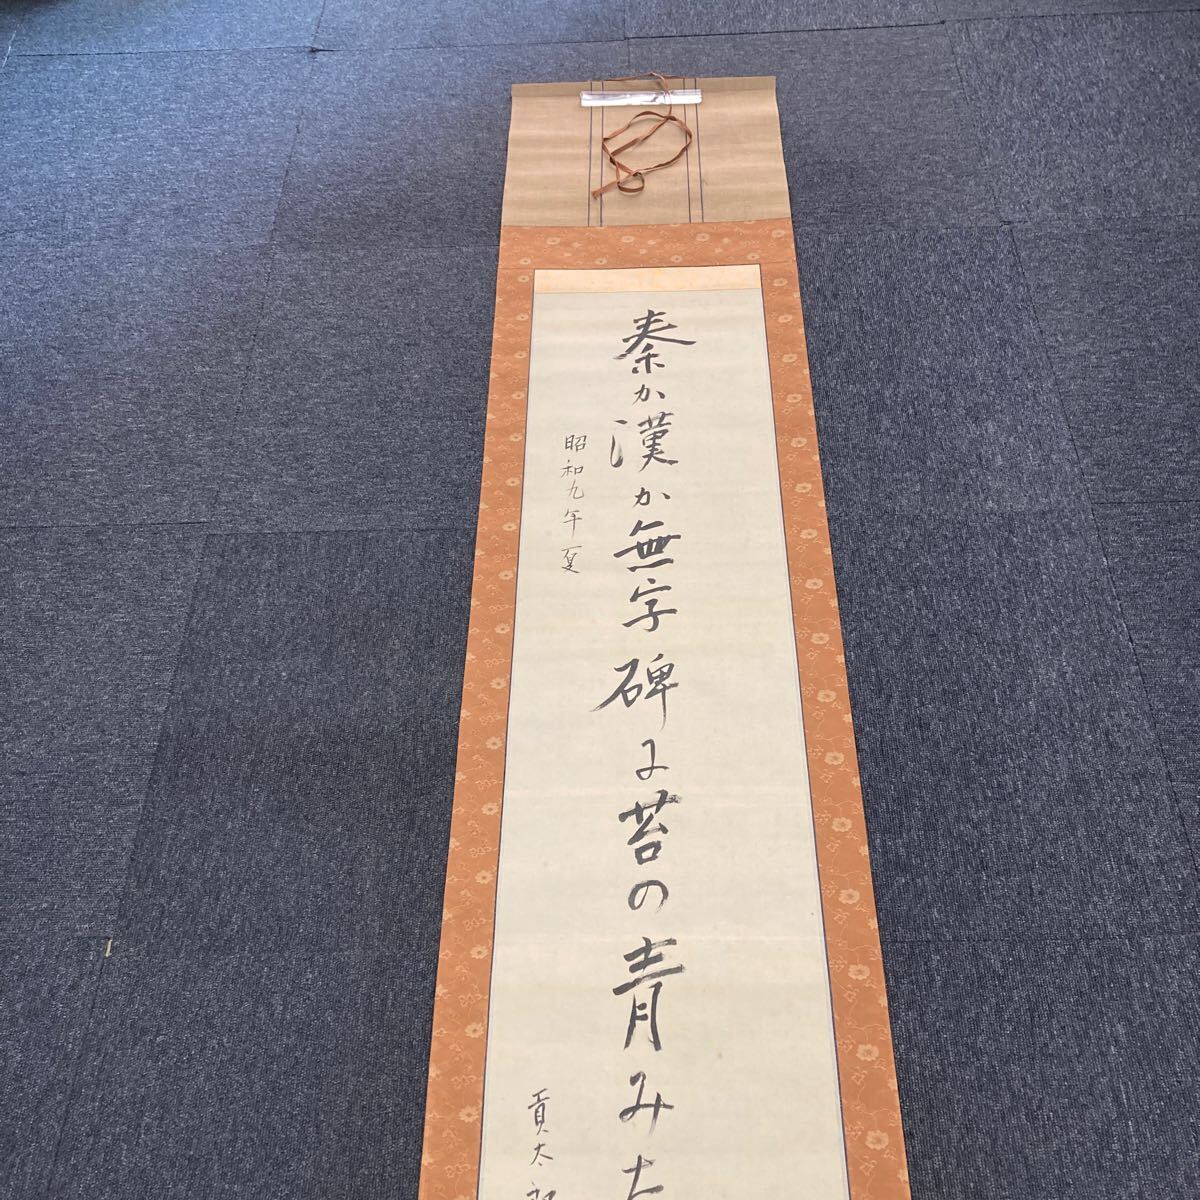 秦か漢か無字碑に苔の青みた
昭和九年夏
貢太郎